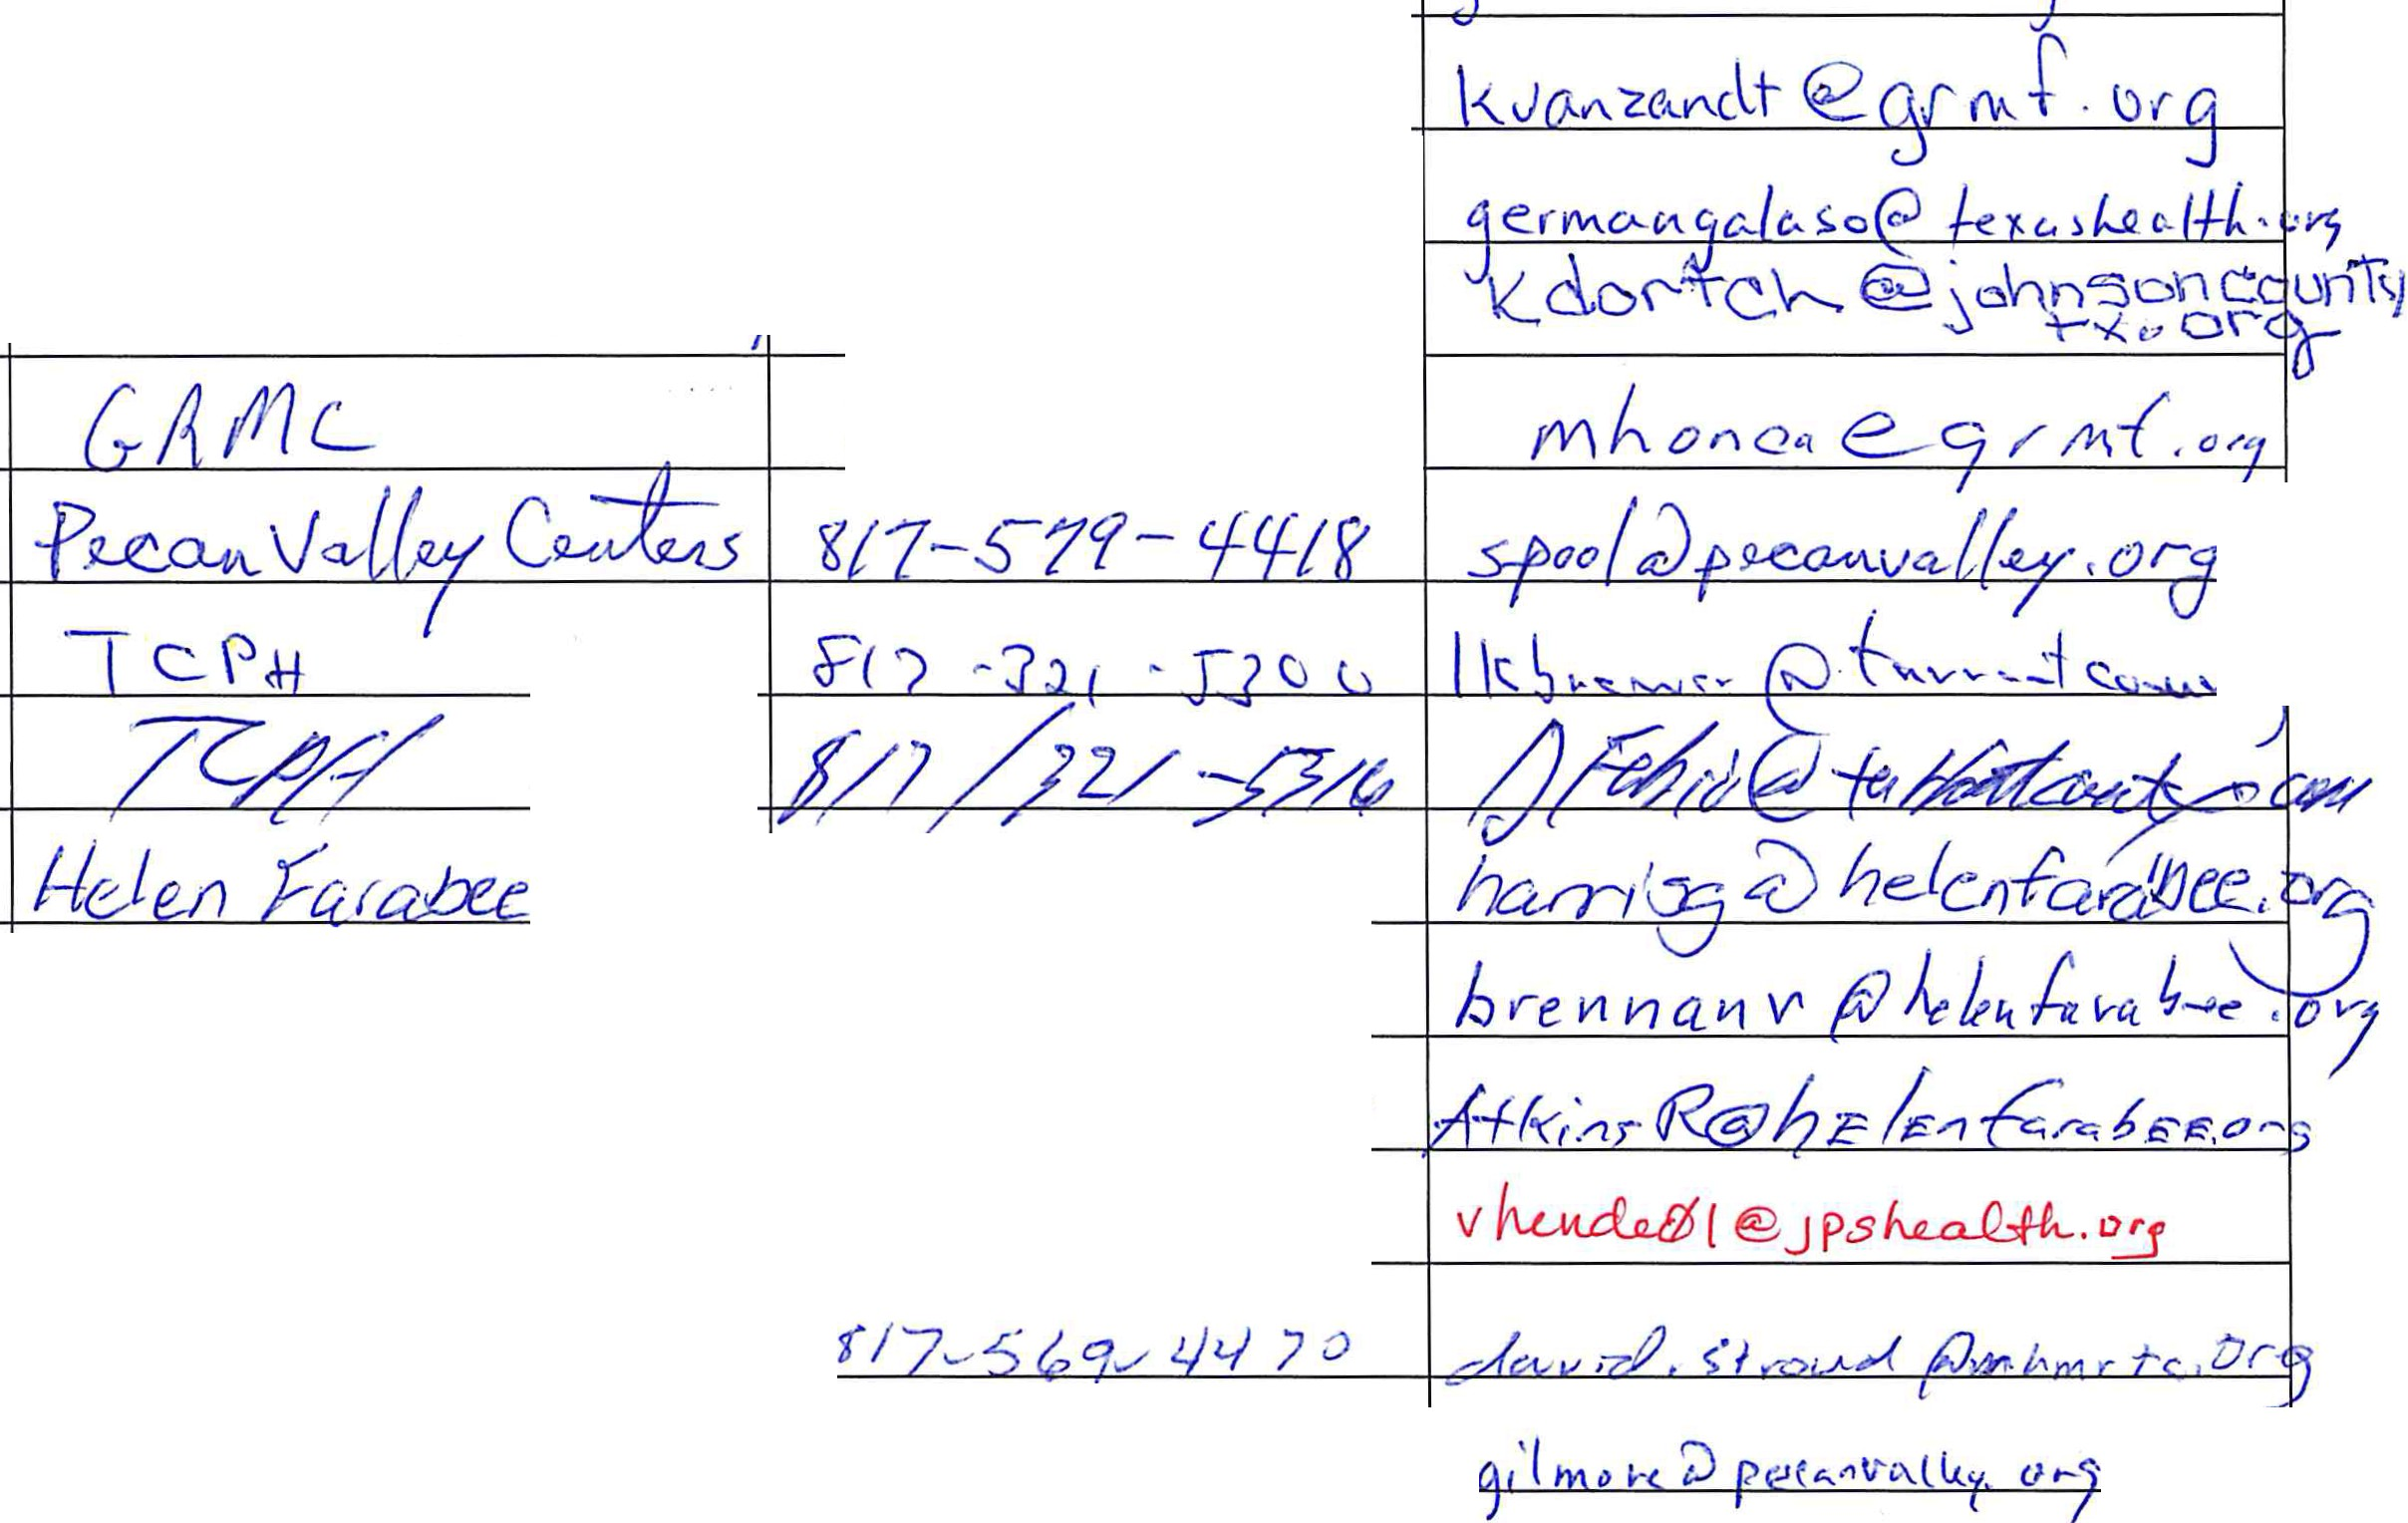 kvanzandt@grmf.org
germangalaso@texashealth.org
kdortch@johnsoncounty
tx.org
GRMC mhonea@grmf.org
Pecan Valley Centers 817-579-4418 spool@pecanvalley.org
TCPH 817-321-5300
TCPH 817/321-5316
Helen Farabee harrisg@helenfarabee.org
brennanv@helenfarabee.org
AtkinsR@hElEnfarabEE.org
vhende01@jpshealth.org
817-569-4470 david.stroud@mhmrtc.org
gilmore@pecanvalley.org